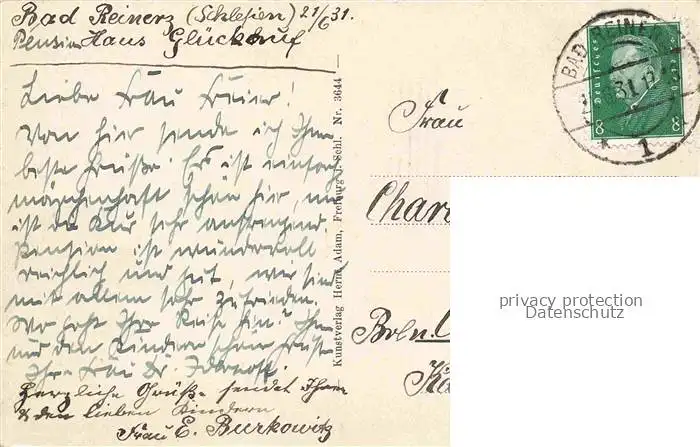 Bad Reinerz (Schlesien) 21/6 31.
Pension Haus Glückauf
Liebe Frau Freier!
Von hier sende ich Ihnen
beste Grüße. Es ist einfach
märchenhaft schön hier, nur
ist die Kur sehr anstrengend.
Pension ist wundervoll
reichlich und gut, wir sind
mit allem sehr zufrieden.
Wo geht Ihre Reise hin? Ihnen
und den Kindern schöne Grüße
Ihre Frau Dr.
Herzliche Grüße sendet Ihnen
& den lieben Kindern
Frau E. Burkowitz
Kunstverlag Herm. Adam, Freiburg i. Schl. Nr. 3644
Frau
Char
Bln.
BAD REINERZ
31.12
1
Deutsches
8 8
privacy protection
Datenschutz